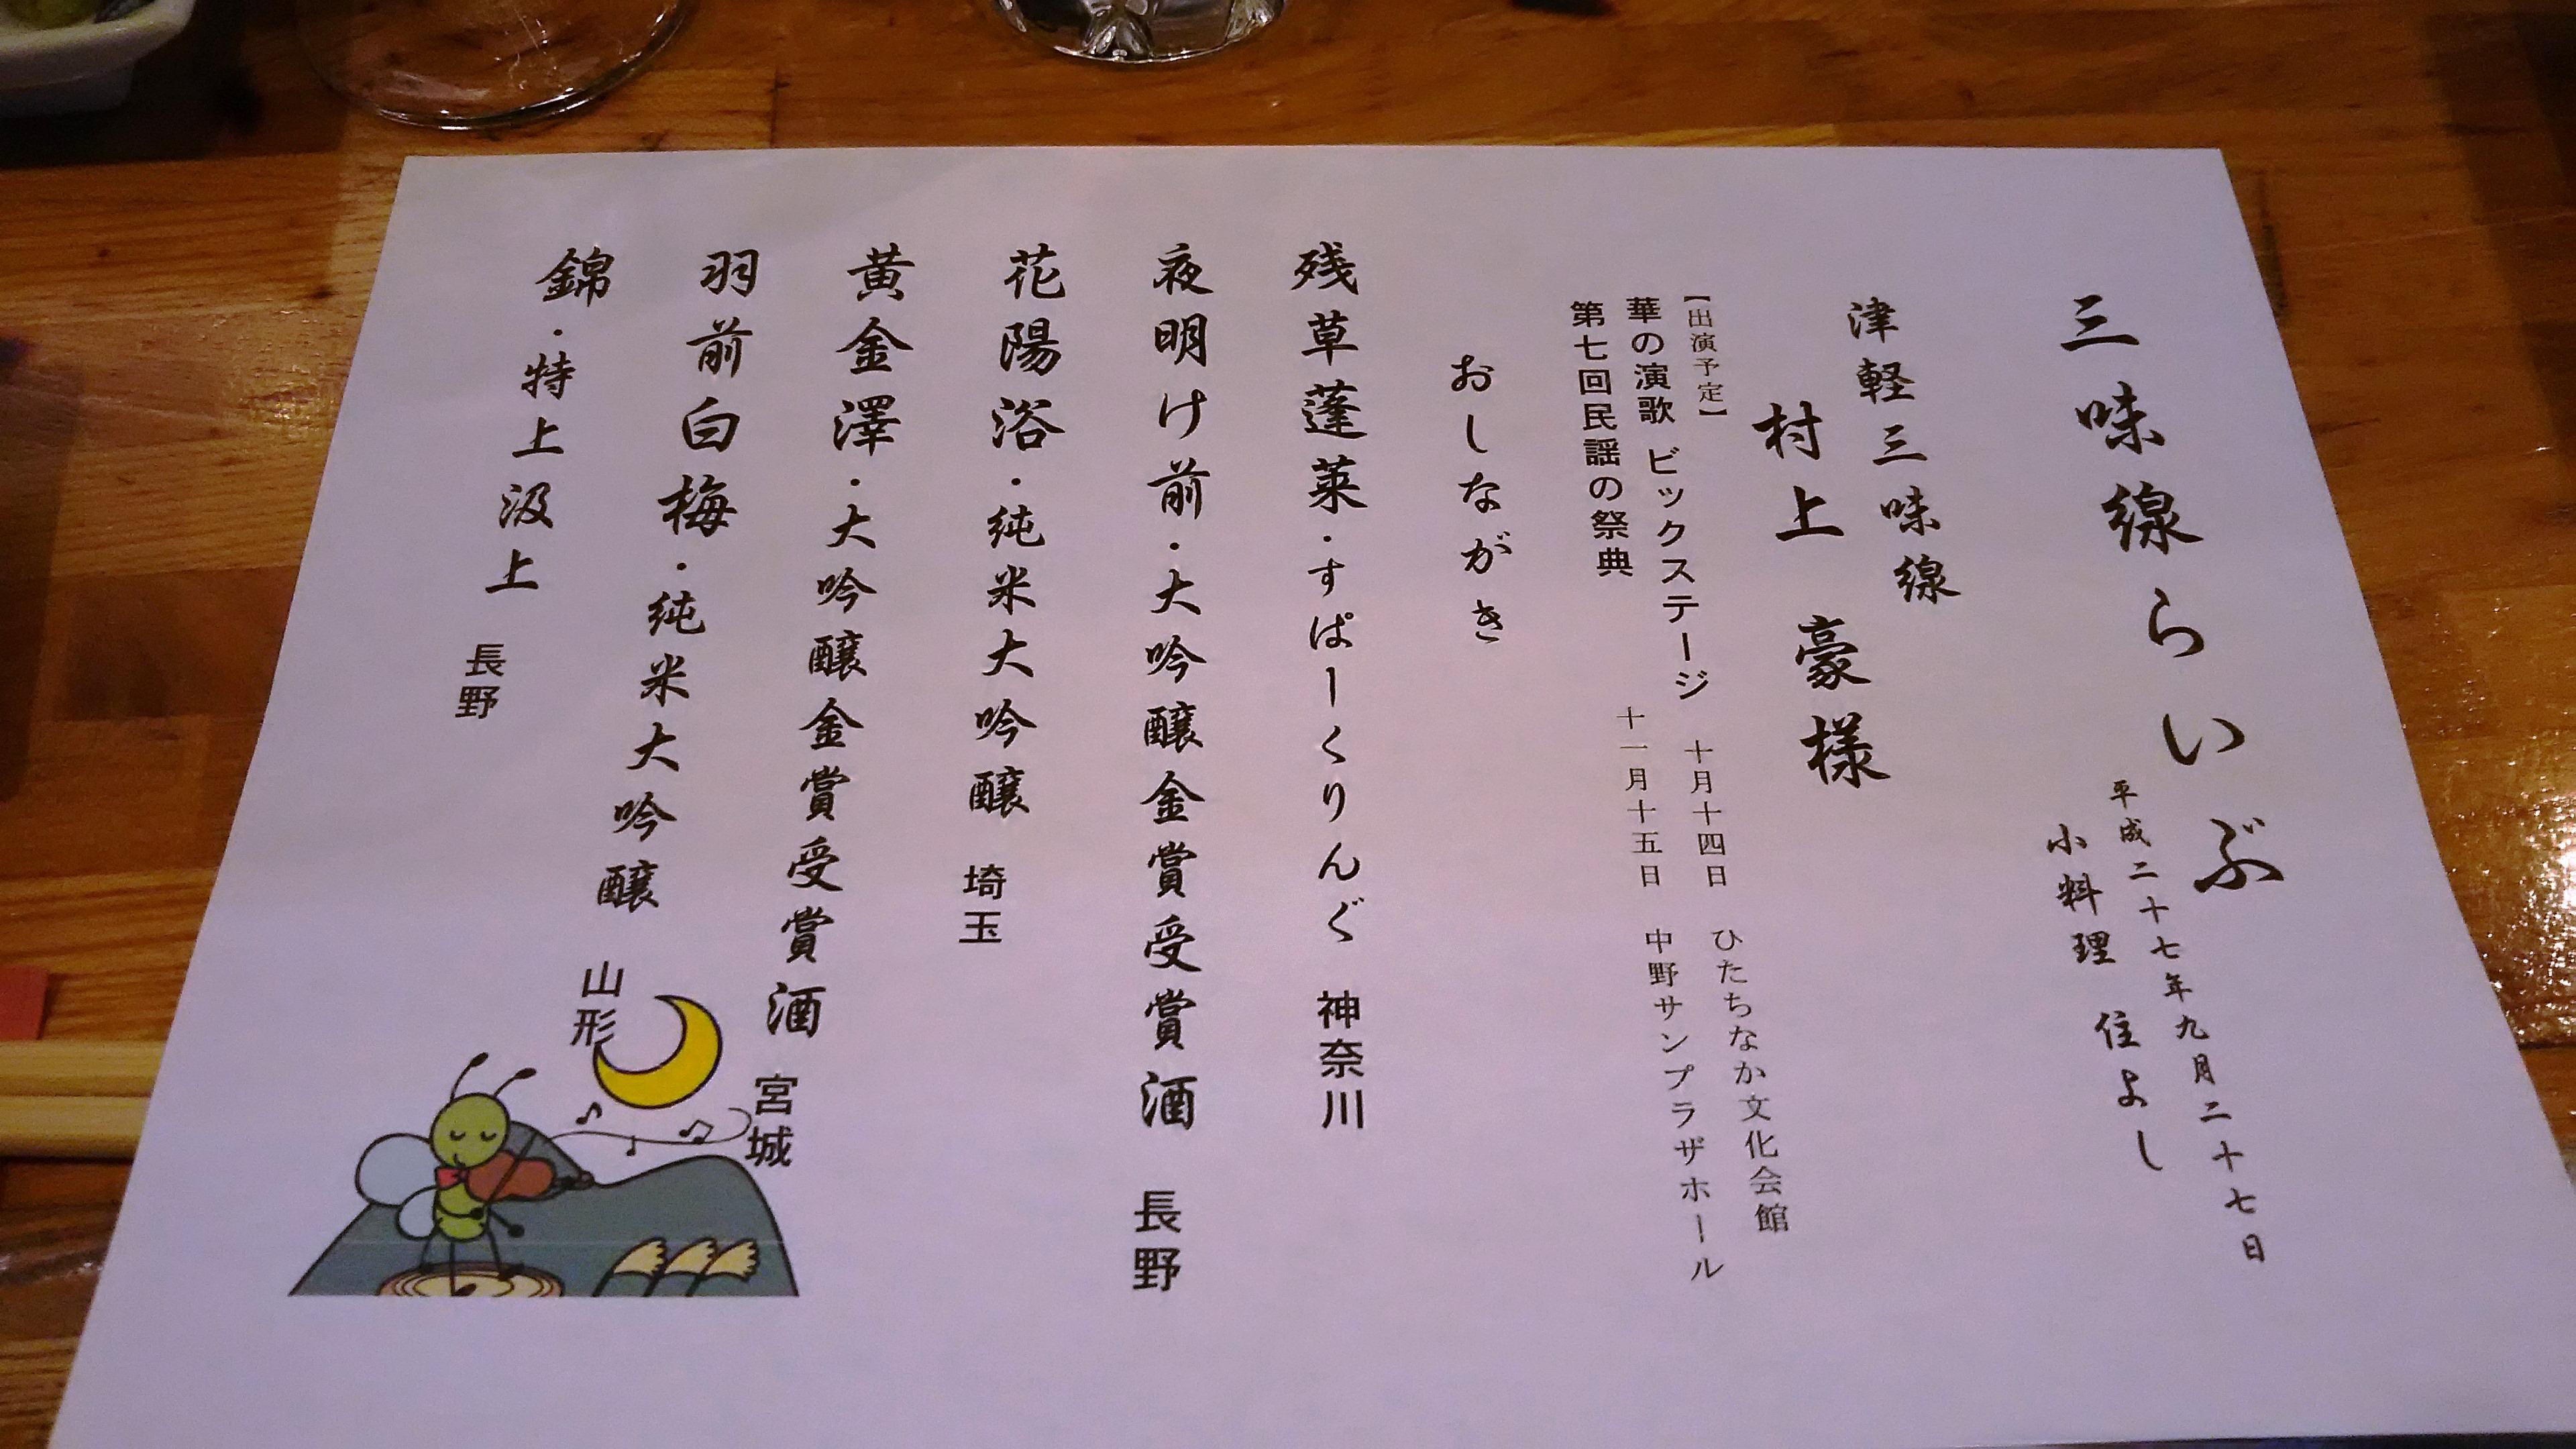 三味線らいぶ
平成二十七年九月二十七日
小料理 住よし
津軽三味線
村上 豪様
【出演予定】
華の演歌 ビックステージ 十月十四日 ひたちなか文化会館
第七回民謡の祭典 十一月十五日 中野サンプラザホール
おしながき
残草蓬莱・すぱーくりんぐ 神奈川
夜明け前・大吟醸金賞受賞酒 長野
花陽浴・純米大吟醸 埼玉
黄金澤・大吟醸金賞受賞酒 宮城
羽前白梅・純米大吟醸 山形
錦・特上汲上 長野